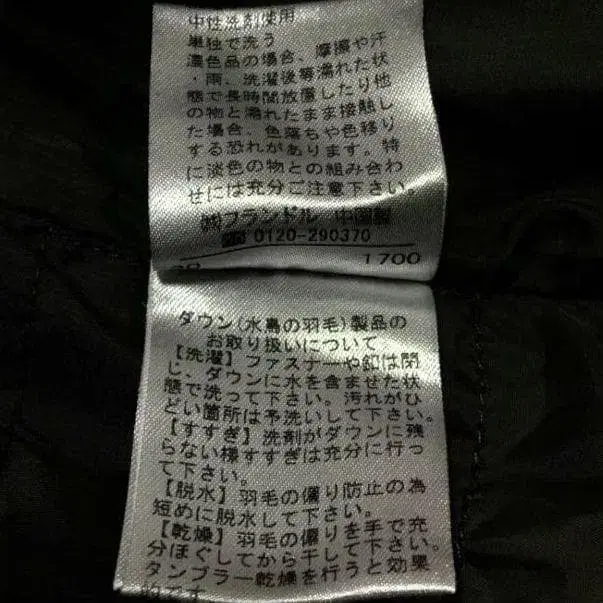 中性洗剤使用
単独で洗う
濃色品の場合、摩擦や汗
・雨、洗濯後等濡れた状
態で長時間放置したり他
の物と濡れたまま接触し
た場合、色落ちや色移り
する恐れがあります。特
に淡色の物との組み合わ
せには充分ご注意下さい。
㈱フランドル 中国製
☎ 0120-290370
1700
ダウン(水鳥の羽毛)製品の
お取り扱いについて
【洗濯】ファスナーや釦は閉
じ、ダウンに水を含ませた状
態で洗って下さい。汚れがひ
どい箇所は予洗いして下さい。
【すすぎ】洗剤がダウンに残
らない様すすぎは充分に行っ
て下さい。
【脱水】羽毛の偏り防止の為
短めに脱水して下さい。
【乾燥】羽毛の偏りを手で充
分ほぐしてから干して下さい。
タンブラー乾燥を行うと効果
的です